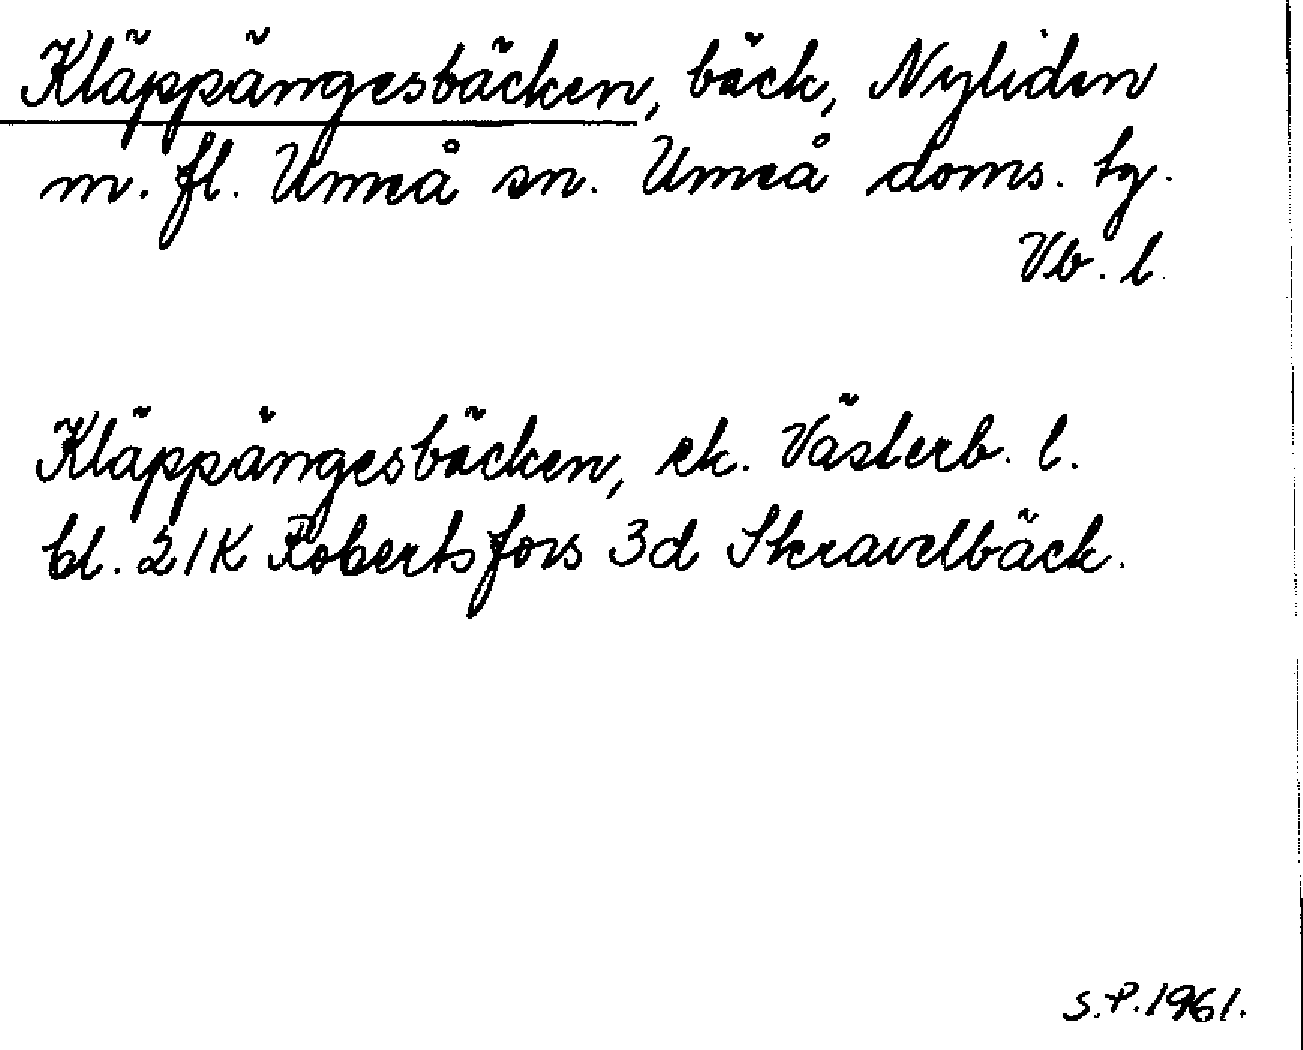 Kläppängesbäcken, bäck, Nyliden
m. fl. Umeå sn. Umeå doms. tg.
Vb. l.
Kläppängesbäcken, ek. Västerb. l.
bl. 21K Robertsfors 3d Skravelbäck.
S.P. 1961.